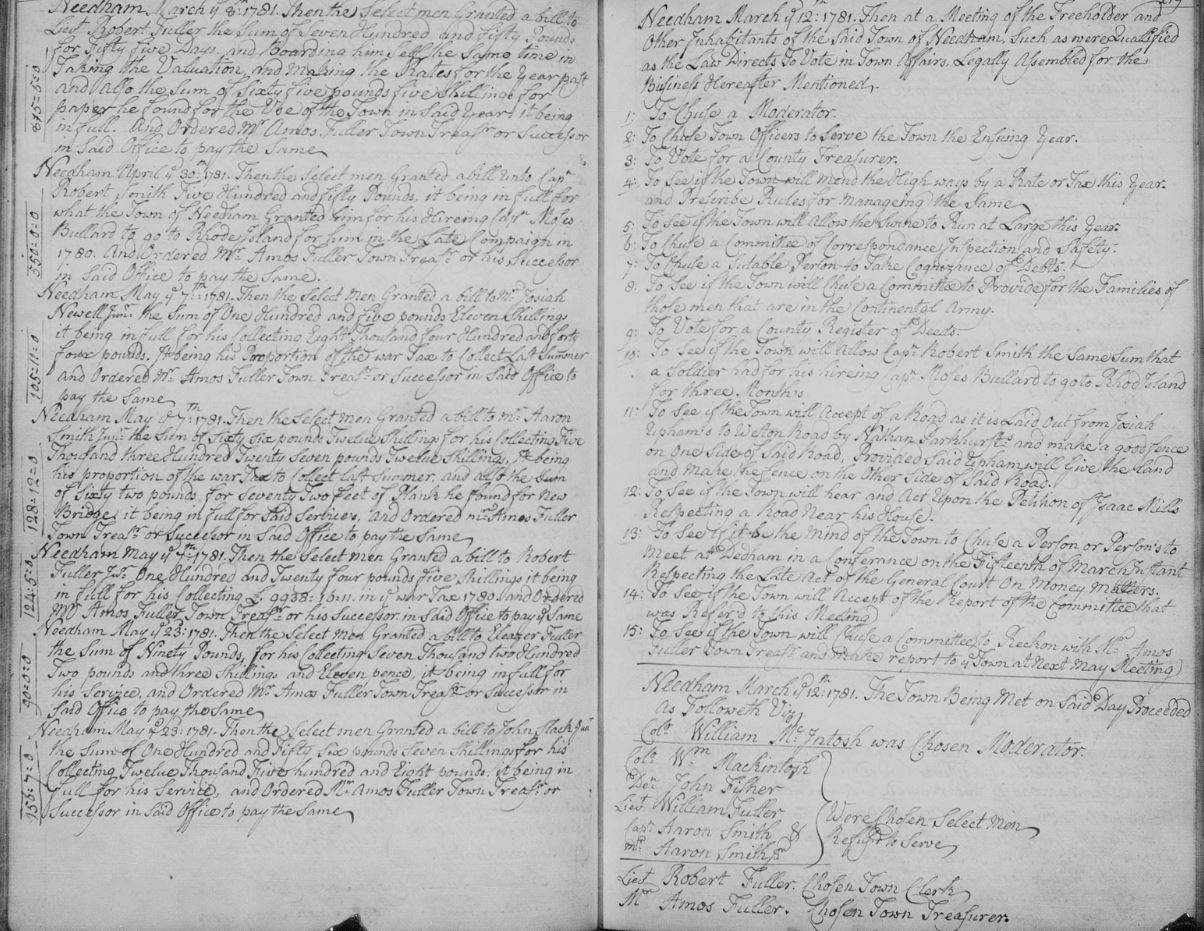 Needham March yᵉ 8ᵗʰ: 1781. Then the Select men Granted a bill to
Lieut. Robert Fuller the Sum of Seven Hundred and fifty Pounds
for Fifty five Days, and Boarding him Self the Same time in
Taking the Valuation, and Making the Rates for the Year past
and also the Sum of Sixty five pounds five Shillings for
paper he found for the Use of the Town in Said Year it being
in full. And Ordered Mʳ Amos Fuller Town Treasʳ or Successor
in Said Office to pay the Same
815=5=0
Needham April yᵉ 30ᵗʰ: 1781. Then the Select men Granted a bill Unto Capᵗ
Robert Smith Five Hundred and fifty Pounds, it being in full for
what the Town of Needham Granted him for his Hireing Capᵗ Moses
Bullard to go to Rhode Island for him in the Late Campaign in
1780. And Ordered Mʳ Amos Fuller Town Treasʳ or his Successor
in Said Office to pay the Same.
550:0:0
Needham May yᵉ 7ᵗʰ: 1781. Then the Select Men Granted a bill to Mʳ Josiah
Newell Junʳ the Sum of One Hundred and five pounds Eleven Shillings
it being in full for his Collecting Eight Thousand four Hundred and forty
four pounds. It being his Proportion of the war Tax to Collect Last Summer
and Ordered Mʳ Amos Fuller Town Treasʳ or Successor in Said Office to
pay the Same
105:11:0
Needham May yᵉ 7ᵗʰ: 1781. Then the Select Men Granted a bill to mʳ Aaron
Smith Junʳ the Sum of Sixty Six pounds Twelve Shillings for his Collecting Five
Thousand three Hundred Twenty Seven pounds Twelve Shillings, It being
his proportion of the war Tax to Collect last Summer, and also the Sum
of Sixty two pounds for Seventy Two feet of Plank he found for New
Bridge, it being in full for Said Services, And Ordered mʳ Amos Fuller
Town Treasʳ or Successor in Said Office to pay the Same
128=12=0
Needham May yᵉ 7ᵗʰ: 1781. Then the Select Men Granted a bill to Robert
Fuller Junʳ One Hundred and Twenty four pounds five Shillings it being
in full for his Collecting £ 9938:16:11. in yᵉ war Tax 1780. and Ordered
Mʳ Amos Fuller Town Treasʳ or his Successor in Said Office to pay yᵉ Same
124:5:0
Needham May yᵉ 23: 1781. Then the Select Men Granted a bill to Eleazer Fuller
the Sum of Ninety Pounds, for his Collecting Seven Thousand two Hundred
Two pounds and three Shillings and Eleven pence, it being in full for
his Service, and Ordered Mʳ Amos Fuller Town Treasʳ or Successor in
Said Office to pay the Same
90=0=0
Needham May yᵉ 23: 1781. Then the Select men Granted a bill to John Slack Junʳ
the Sum of One Hundred and Fifty Six pounds Seven Shillings for his
Collecting Twelve Thousand Five hundred and Eight pounds. it being in
Full for his Service, and Ordered Mʳ Amos Fuller Town Treasʳ or
Successor in Said Office to pay the Same
156=7=0
Needham March yᵉ 12ᵗʰ: 1781. Then at a Meeting of the Freeholder and
Other Inhabitants of the Said Town of Needham, Such as were Qualified
as the Law Directs To Vote in Town Affairs. Legally Asembled for the
Business Hereafter Mentioned,
1: To Chuse a Moderator.
2: To Choose Town Officers to Serve the Town the Ensuing Year.
3: To Vote for a County Treasurer.
4: To See if the Town will mend the High ways by a Rate or Tax this Year.
and Prescribe Rules for Manageing the Same
5: To See if the Town will Allow the Swine to Run at Large this Year.
6: To Chuse a Committee of Correspondance Inspection and Safety.
7: To Chuse a Sutable Person to Take Cognizance of Debts.
8: To See if the Town will Chuse a Committee to Provide for the Families of
those men that are in the Continental Army.
9: To Vote for a County Register of Deeds
10: To See if the Town will Allow Capᵗ Robert Smith the Same Sum that
a Soldier had for his hireing Capᵗ Moses Bullard to go to Rhod Island
for three Months
11: To See if the Town will Accept of a Road as it is Laid Out from Josiah
Upham's to Weston Road by Nathan Parkhurst's and make a good fence
on One Side of Said Road, Provided Said Upham will Give the Land
and Make the fence on the Other Side of Said Road.
12: To See if the Town will hear and Act Upon the Petition of Isaac Mills
Respecting a Road Near his House.
13: To See if it be the Mind of the Town to Chuse a Person or Person's to
Meet at Dedham in a Conferance on the Fifteenth of March Instant
Respecting the Late Act of the General Court On Money Matters.
14: To See if the Town will Recept of the Report of the Committee that
was Refer'd to this Meeting
15: To See if the Town will Chuse a Committee to Reckon with Mʳ Amos
Fuller Town Treasʳ and make report to yᵉ Town at Next May Meeting
Needham March yᵉ 12ᵗʰ: 1781. The Town Being Met on Said Day Proceeded
as Followeth Viz
Colᵒ William Mᶜ Intosh was Chosen Moderator.
Colᵒ Wᵐ Mackintosh
Deⁿ John Fisher
Lieut William Fuller
Capᵗ Aaron Smith &
mʳ Aaron Smith Jʳ
Were Chosen Select Men
Refusᵈ to Serve
Lieut Robert Fuller. Chosen Town Clerk
Mʳ Amos Fuller. Chosen Town Treasurer.